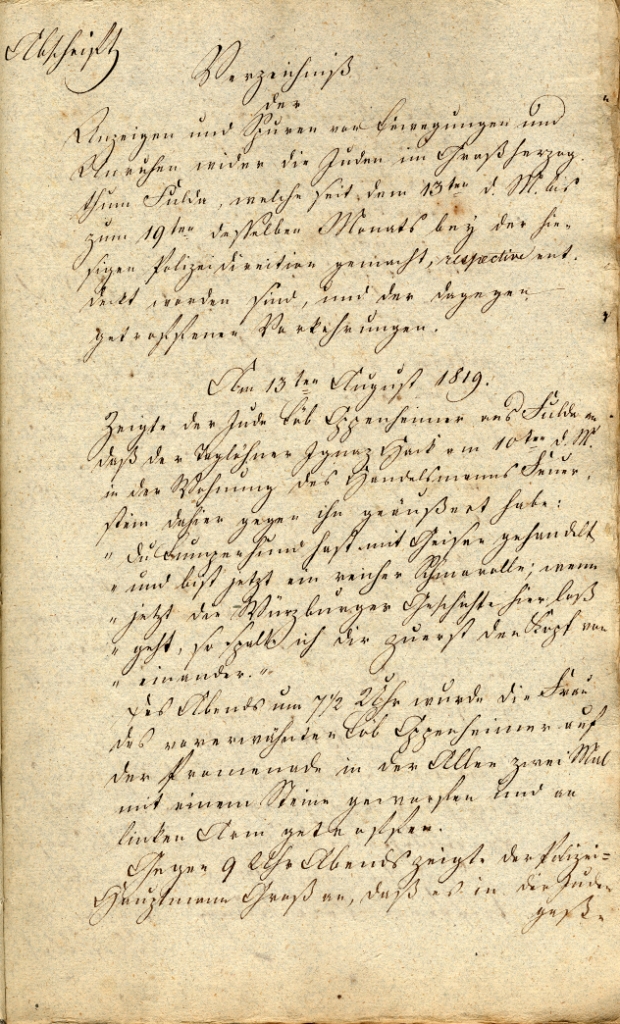 Abschrift
Verzeichniß
der
Anzeigen und Spuren von Bewegungen und
Unruhen wider die Juden im Großherzog-
thum Fulda, welche seit dem 13ten d. M. bis
zum 19ten desselben Monats bey der hie-
sigen Polizeidirection gemacht, respective ent-
deckt worden sind, und der dagegen
getroffenen Vorkehrungen.
Am 13ten August 1819.
Zeigte der Jude Löb Oppenheimer aus Fulda an
daß der Taglöhner Ignaz am 10ten d. M.
in der Wohnung des Handelsmanns Feuer-
stein dahier gegen ihn geäußert habe:
" Du Lumpenhund hast mit Geisen gehandelt
" und bist jetzt ein reicher; wenn
" jetzt die Würzburger Geschichte hier loß
" geht, so spalte ich dir zuerst den Kopf von
" einander."
Des Abends um 7 1/2 Uhr wurde die Frau
des vorerwähnten Löb Oppenheimer auf
der Promenade in der Allee zwei Mal
mit einem Steine geworffen und am
linken Arm getroffen.
Gegen 9 Uhr Abends zeigte der Polizei=
Hauptmann Groß an, daß es in der Juden
gaße